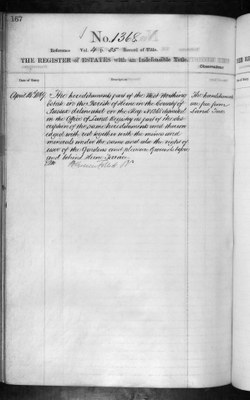 167
No. 1368
Reference Vol. 4 85 Record of Title
THE REGISTER of ESTATES with an Indefeasible Title.
Date of Entry
Description
Observations
April 1869 The hereditaments part of the West Worthing
Estate in the Parish of Heene in the County of
Sussex delineated on the Map No. deposited
in the Office of Land Registry as part of the des-
cription of the same hereditaments and therein
edged with red together with the mines and
minerals under the same and also the right of
user of the Gardens and pleasure Grounds before
and behind
The hereditaments
are free from
Land Tax